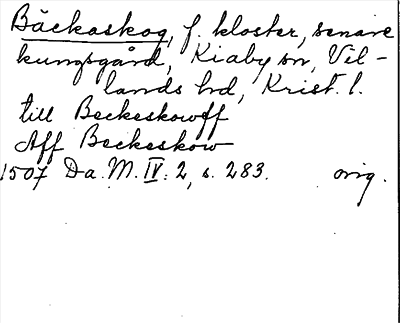 Bäckaskog, f. kloster, senare
kungsgård, Kiaby sn, Vil-
lands hd, Krist. l.
till Beckeskowff
Aff Beckeskow
1507 Da. M. IV: 2, s. 283. orig.